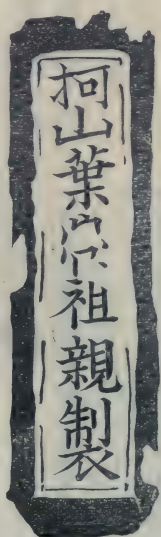 柯山葉宗祖親製